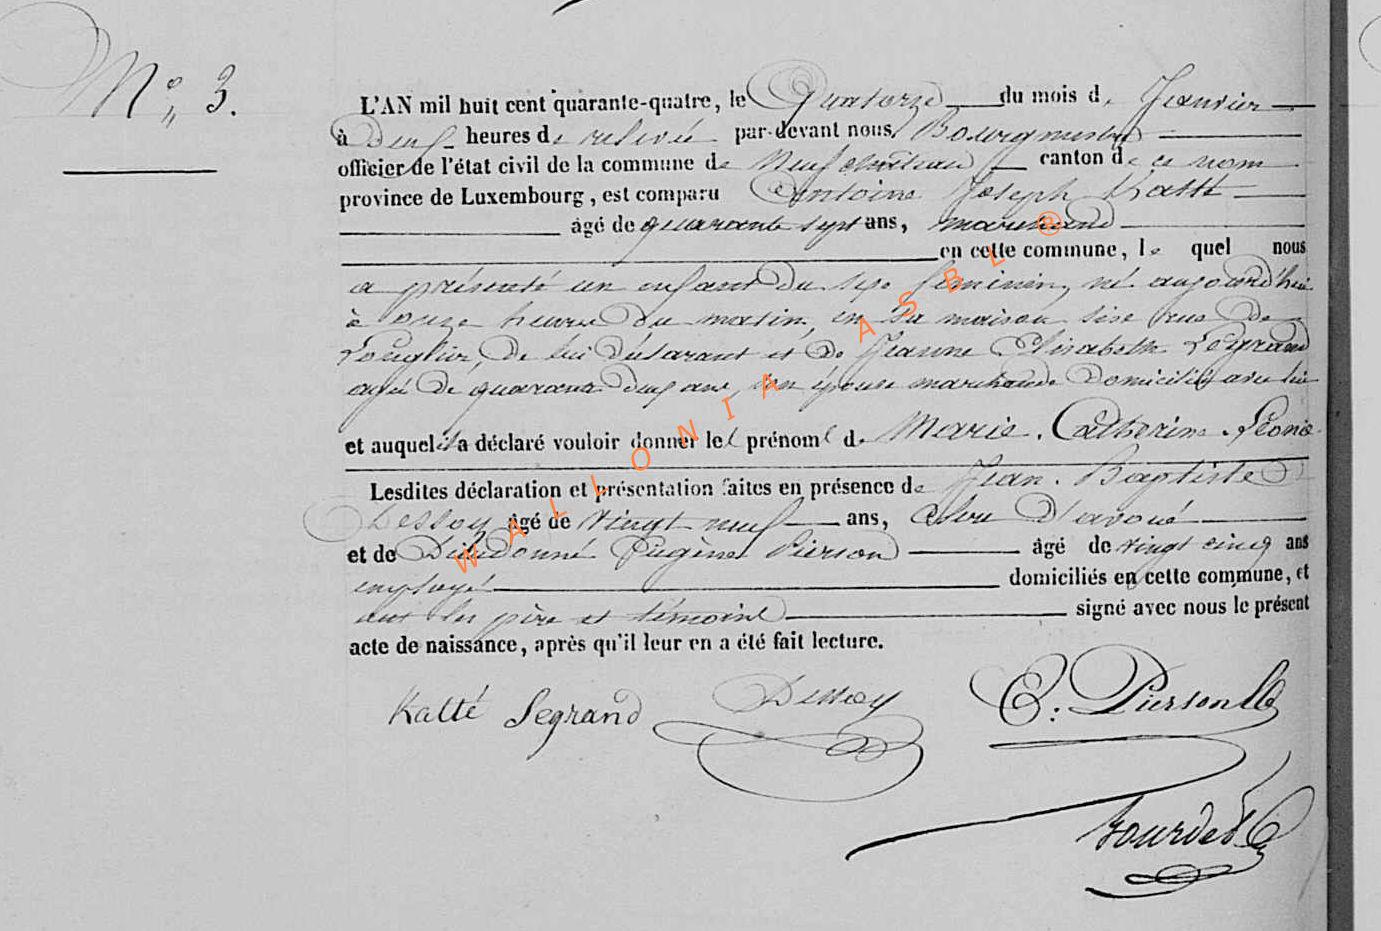 N° 3.
L'AN mil huit cent quarante-quatre, le Quatorze du mois de Janvier
à Deux heures de relevée par-devant nous Bourgmestre
officier de l'état civil de la commune de Neufchâteau canton de ce nom
province de Luxembourg, est comparu Antoine Joseph Katté
âgé de quarante sept ans, marchand
en cette commune, le quel nous
a présenté un enfant du sexe féminin, né aujourd'hui
à onze heures du matin, en sa maison sise rue de
Longlier, de lui déclarant et de Jeanne Elisabeth Legrand
agée de quarante deux ans, son épouse marchande domiciliée avec lui
et auquel il a déclaré vouloir donner les prénoms de Marie. Catherine. Léonie
Lesdites déclaration et présentation faites en présence de Jean. Baptiste
Dessoy âgé de vingt neuf ans, Clerc d'avoué
et de Dieudonné Eugène Pierson âgé de vingt cinq ans
employé domiciliés en cette commune, et
ont les père et témoins signé avec nous le présent
acte de naissance, après qu'il leur en a été fait lecture.
Katté Legrand Dessoy E. Pierson
WALLONIA ASBL ®